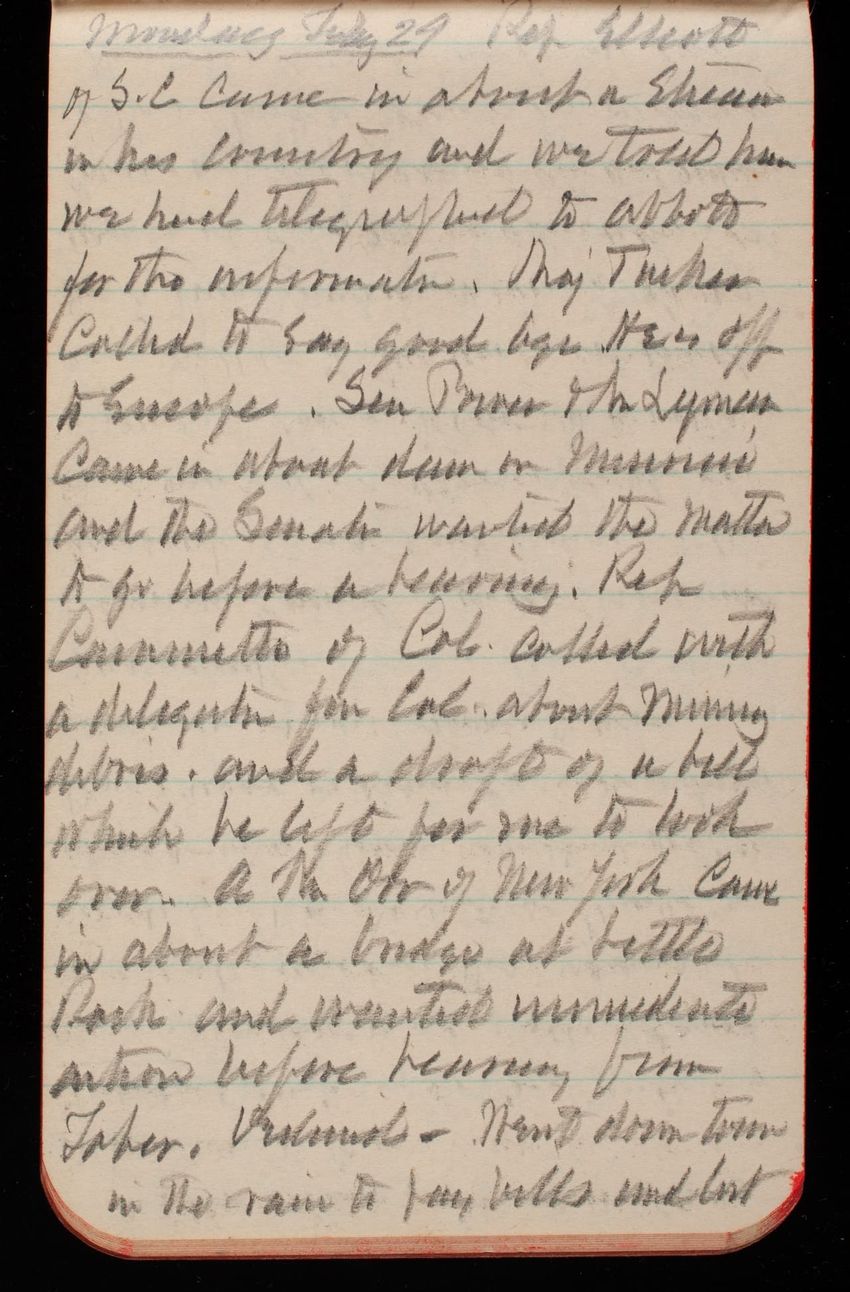 Monday July 29 Rep. Elliott
of S.C came in about a Stream
in his country and we told him
we had telegraphed to Abbott
for the informatn. Maj Tucker
called to say good bye. He is off
to Europe. Sen Power & Mr Lyman
came in about dam on Missouri
and the Senator wanted the matter
to go before a hearing. Rep
Caminetti of Col. called with
a delegatn from Col. about Mining
debris. and a draft of a bill
which he left for me to look
over. A Mr Orr of New York came
in about a bridge at Little
Rock and wanted immediate
action before hearing from
Taber. Declined - Went down town
in the rain to pay bills and lost